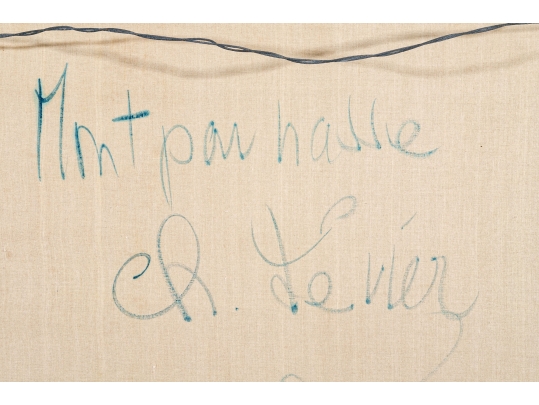 Montparnasse
Ch. Levier